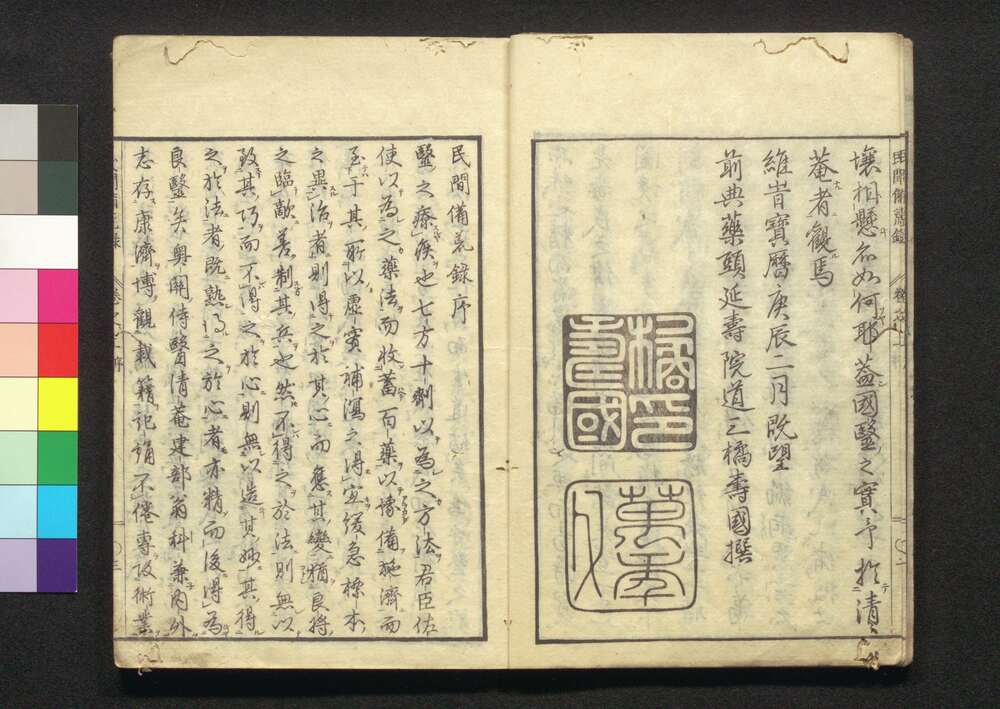 壤相懸為如何耶蓋國醫之實予於清
菴者觀焉
維旹寶曆庚辰二月既望
前典藥頭延壽院道三橘壽國撰
橘印壽國
民間備荒錄序
醫之療疾也七方十劑以為之方法君臣佐
使以為之藥法而收蓄百藥以豫備施濟而
至于其所以虛實補瀉之得宜緩急標本
之異治者則得之於其心而應其變猶良將
之臨敵善制其兵也然不得之於法則無以
致其巧而不得之於心則無以造其妙其得
之於法者既熟得之於心者亦精而後得為
良醫矣奥開侍醫清菴建部翁科兼內外
志存康濟博觀載籍記誦不倦專攻術業